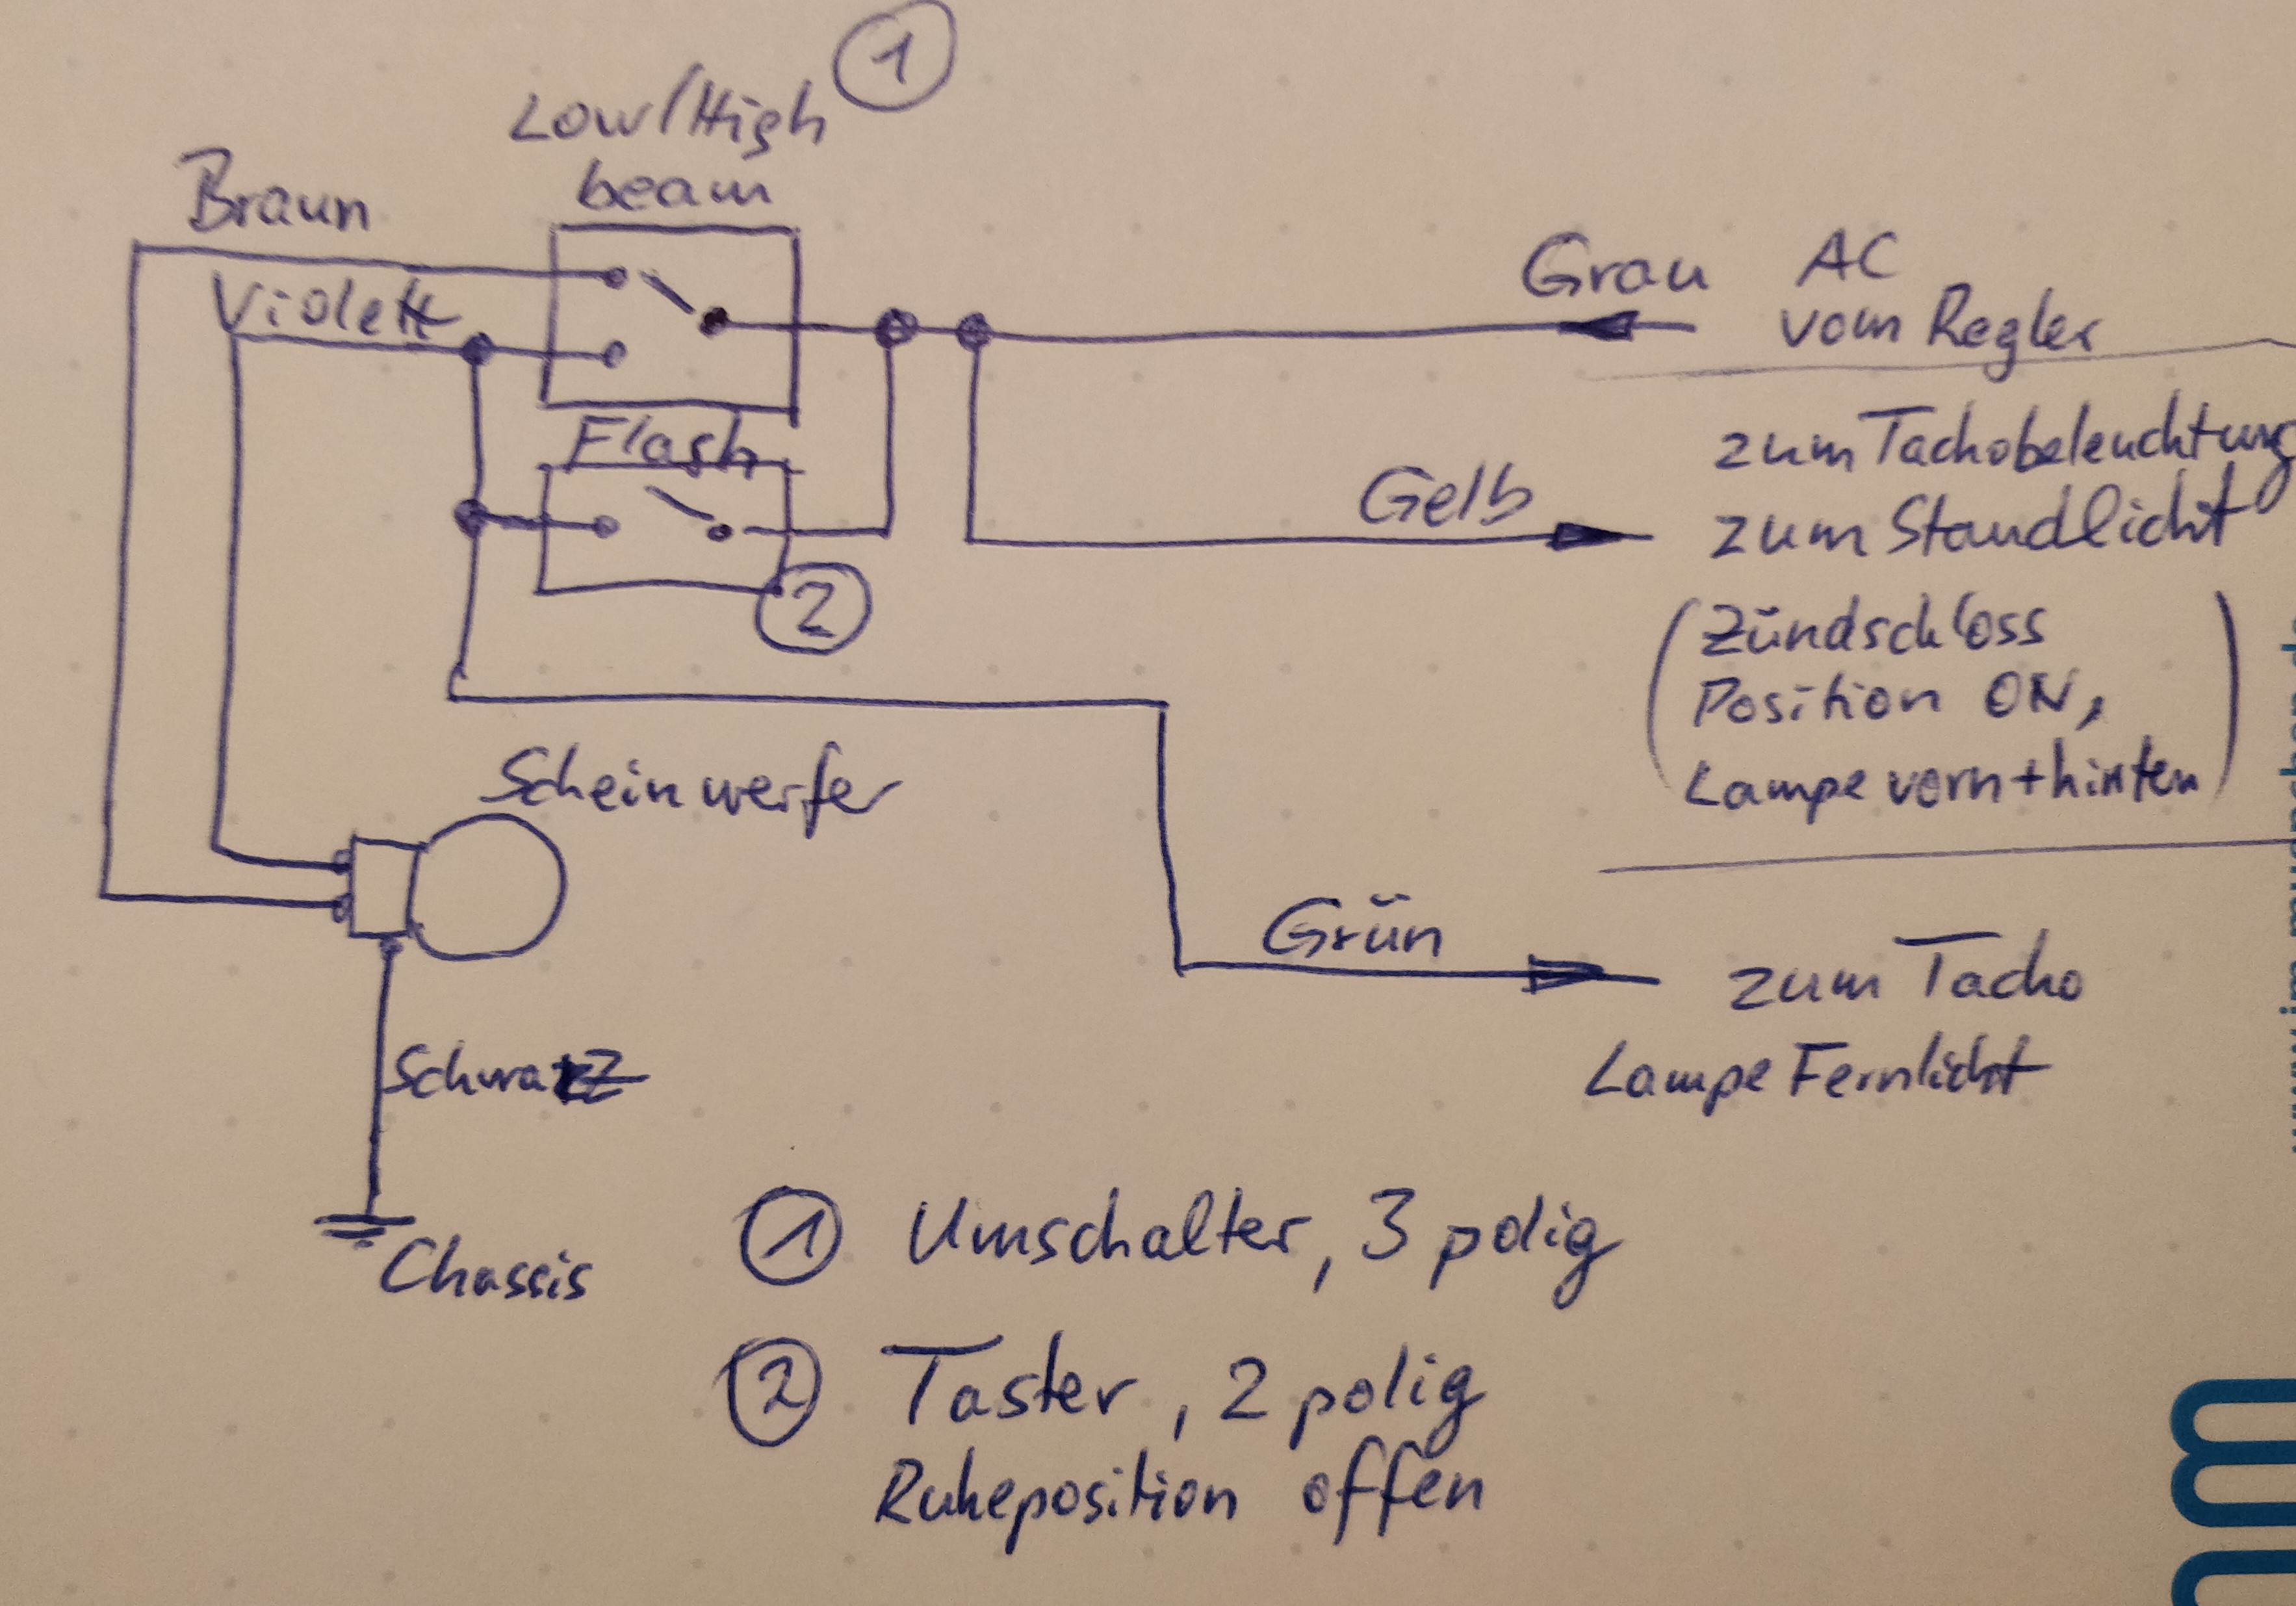 1
Low/High
beam
Braun
Violett
Grau
AC
vom Regler
Flash
2
Gelb
zum Tachobeleuchtung
zum Standlicht
(Zündschloss
Position ON,
Lampe vorn+hinten)
Scheinwerfer
Grün
zum Tacho
Lampe Fernlicht
Schwarz
Chassis
1 Umschalter, 3 polig
2 Taster, 2 polig
Ruheposition offen